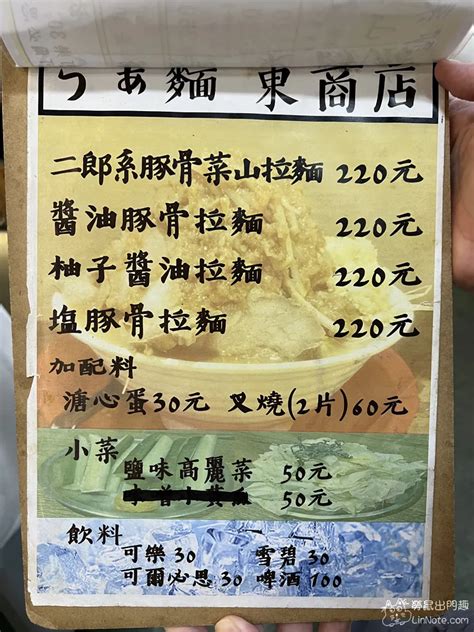 らぁ麵 東商店
二郎系豚骨菜山拉麵 220元
醬油豚骨拉麵 220元
柚子醬油拉麵 220元
塩豚骨拉麵 220元
加配料
溏心蛋30元 叉燒(2片)60元
小菜
鹽味高麗菜 50元
50元
飲料
可樂 30 雪碧 30
可爾必思 30 啤酒 100
旁鼠出門趣
LinNote.com